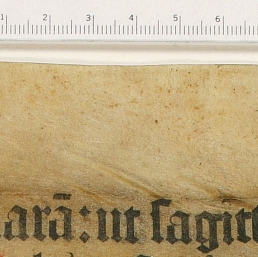 1 2 3 4 5 6
arā: ut sagitt